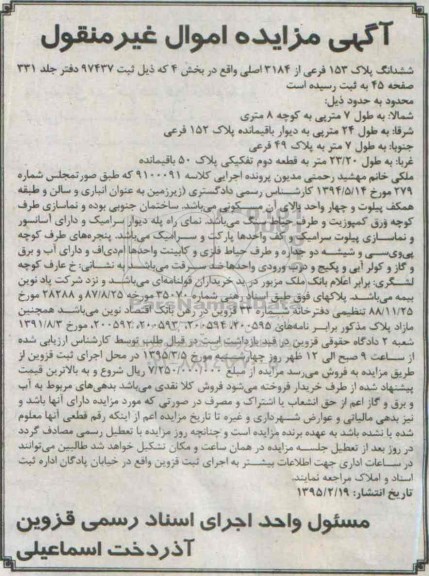 آگهی مزایده اموال غیرمنقول
ششدانگ پلاک ۱۵۳ فرعی از ۳۱۸۴ اصلی واقع در بخش ۴ که ذیل ثبت ۹۷۴۳۷ دفتر جلد ۳۳۱
صفحه ۴۵ به ثبت رسیده است
محدود به حدود ذیل:
شمالا: به طول ۷ متربی به کوچه ۸ متری
شرقا: به طول ۲۴ متربی به دیوار باقیمانده پلاک ۱۵۲ فرعی
جنوبا: به طول ۷ متر به پلاک ۴۹ فرعی
غربا: به طول ۲۳/۲۰ متر به قطعه دوم تفکیکی پلاک ۵۰ باقیمانده
ملکی خانم مهشید رحمنی مدیون پرونده اجرایی کلاسه ۹۱۰۰۰۹۱ که طبق صورتمجلس شماره
۲۷۹ مورخ ۱۳۹۴/۵/۱۴ کارشناس رسمی دادگستری (زیرزمین به عنوان انباری و سالن و طبقه
همکف پیلوت و چهار واحد بالای آن مسکونی می‌باشد. ساختمان جنوبی بوده و نماسازی طرف
کوچه ورق کمپوزیت و طرف حیاط سنگ می‌باشد. نمای راه پله دیوار سرامیک و دارای آسانسور
و نماسازی پیلوت سرامیک، کف واحدها پارکت و سرامیک می‌باشد. پنجره‌های طرف کوچه
پی‌وی‌سی و شیشه دو جداره و طرف حیاط فلزی و کابینت واحدها ام‌دی‌اف و دارای آب و برق
و گاز و کولر آبی و پکیج و درب ورودی واحدها ضد سرقت می‌باشد به نشانی: خ عارف کوچه
لشگری: برابر اعلام بانک ملک مزبور در ید خریداران قولنامه‌ای می‌باشد و نزد شرکت پاد نوین
بیمه می‌باشد. پلاکهای فوق طبق اسناد رهنی شماره ۳۵۰۷۰ مورخ ۸۷/۸/۲۵ و ۲۸۲۸۸ مورخ
۸۸/۱۱/۲۵ تنظیمی دفترخانه شماره قزوین در رهن بانک اقتصاد نوین می‌باشد همچنین
مازاد پلاک مذکور برابر نامه‌های ۲۰۰۵۹۵، ۲۰۰۵۹۴، ۲۰۰۵۹۳، ۲۰۰۵۹۲ مورخ ۱۳۹۱/۸/۳
شعبه ۲ دادگاه حقوقی قزوین در قید بازداشت است در قبال طلب توسط کارشناس ارزیابی شده
از ساعت ۹ صبح الی ۱۲ ظهر روز چهارشنبه مورخ ۱۳۹۵/۳/۵ در محل اجرای ثبت قزوین از
طریق مزایده به فروش می‌رسد مزایده از مبلغ ۷/۲۵۰/۰۰۰/۰۰۰ ریال شروع و به بالاترین قیمت
پیشنهاد شده از طرف خریدار فروخته می‌شود فروش کلا نقدی می‌باشد بدهی‌های مربوط به آب
و برق و گاز اعم از حق انشعاب یا اشتراک و مصرف در صورتی که مورد مزایده دارای آنها باشد و
نیز بدهی مالیاتی و عوارض شهرداری و غیره تا تاریخ مزایده اعم از اینکه رقم قطعی آنها معلوم
شده یا نشده باشد به عهده برنده مزایده است و چنانچه روز مزایده با تعطیل رسمی مصادف گردد
در روز بعد از تعطیل جلسه مزایده در همان ساعت و مکان تشکیل خواهد شد طالبین می‌توانند
در ساعات اداری جهت اطلاعات بیشتر به اجرای ثبت قزوین واقع در خیابان پادگان اداره ثبت
اسناد و املاک مراجعه نمایند.
تاریخ انتشار: ۱۳۹۵/۲/۱۹
مسئول واحد اجرای اسناد رسمی قزوین
آذردخت اسماعیلی